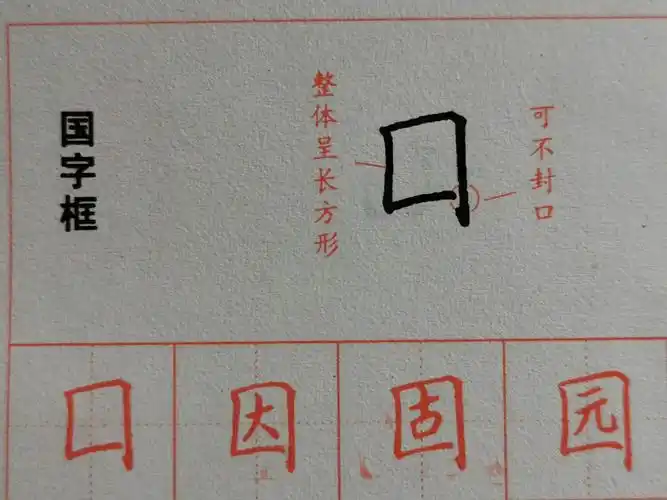 国字框
整体呈长方形
囗
可不封口
囗 因 固 园